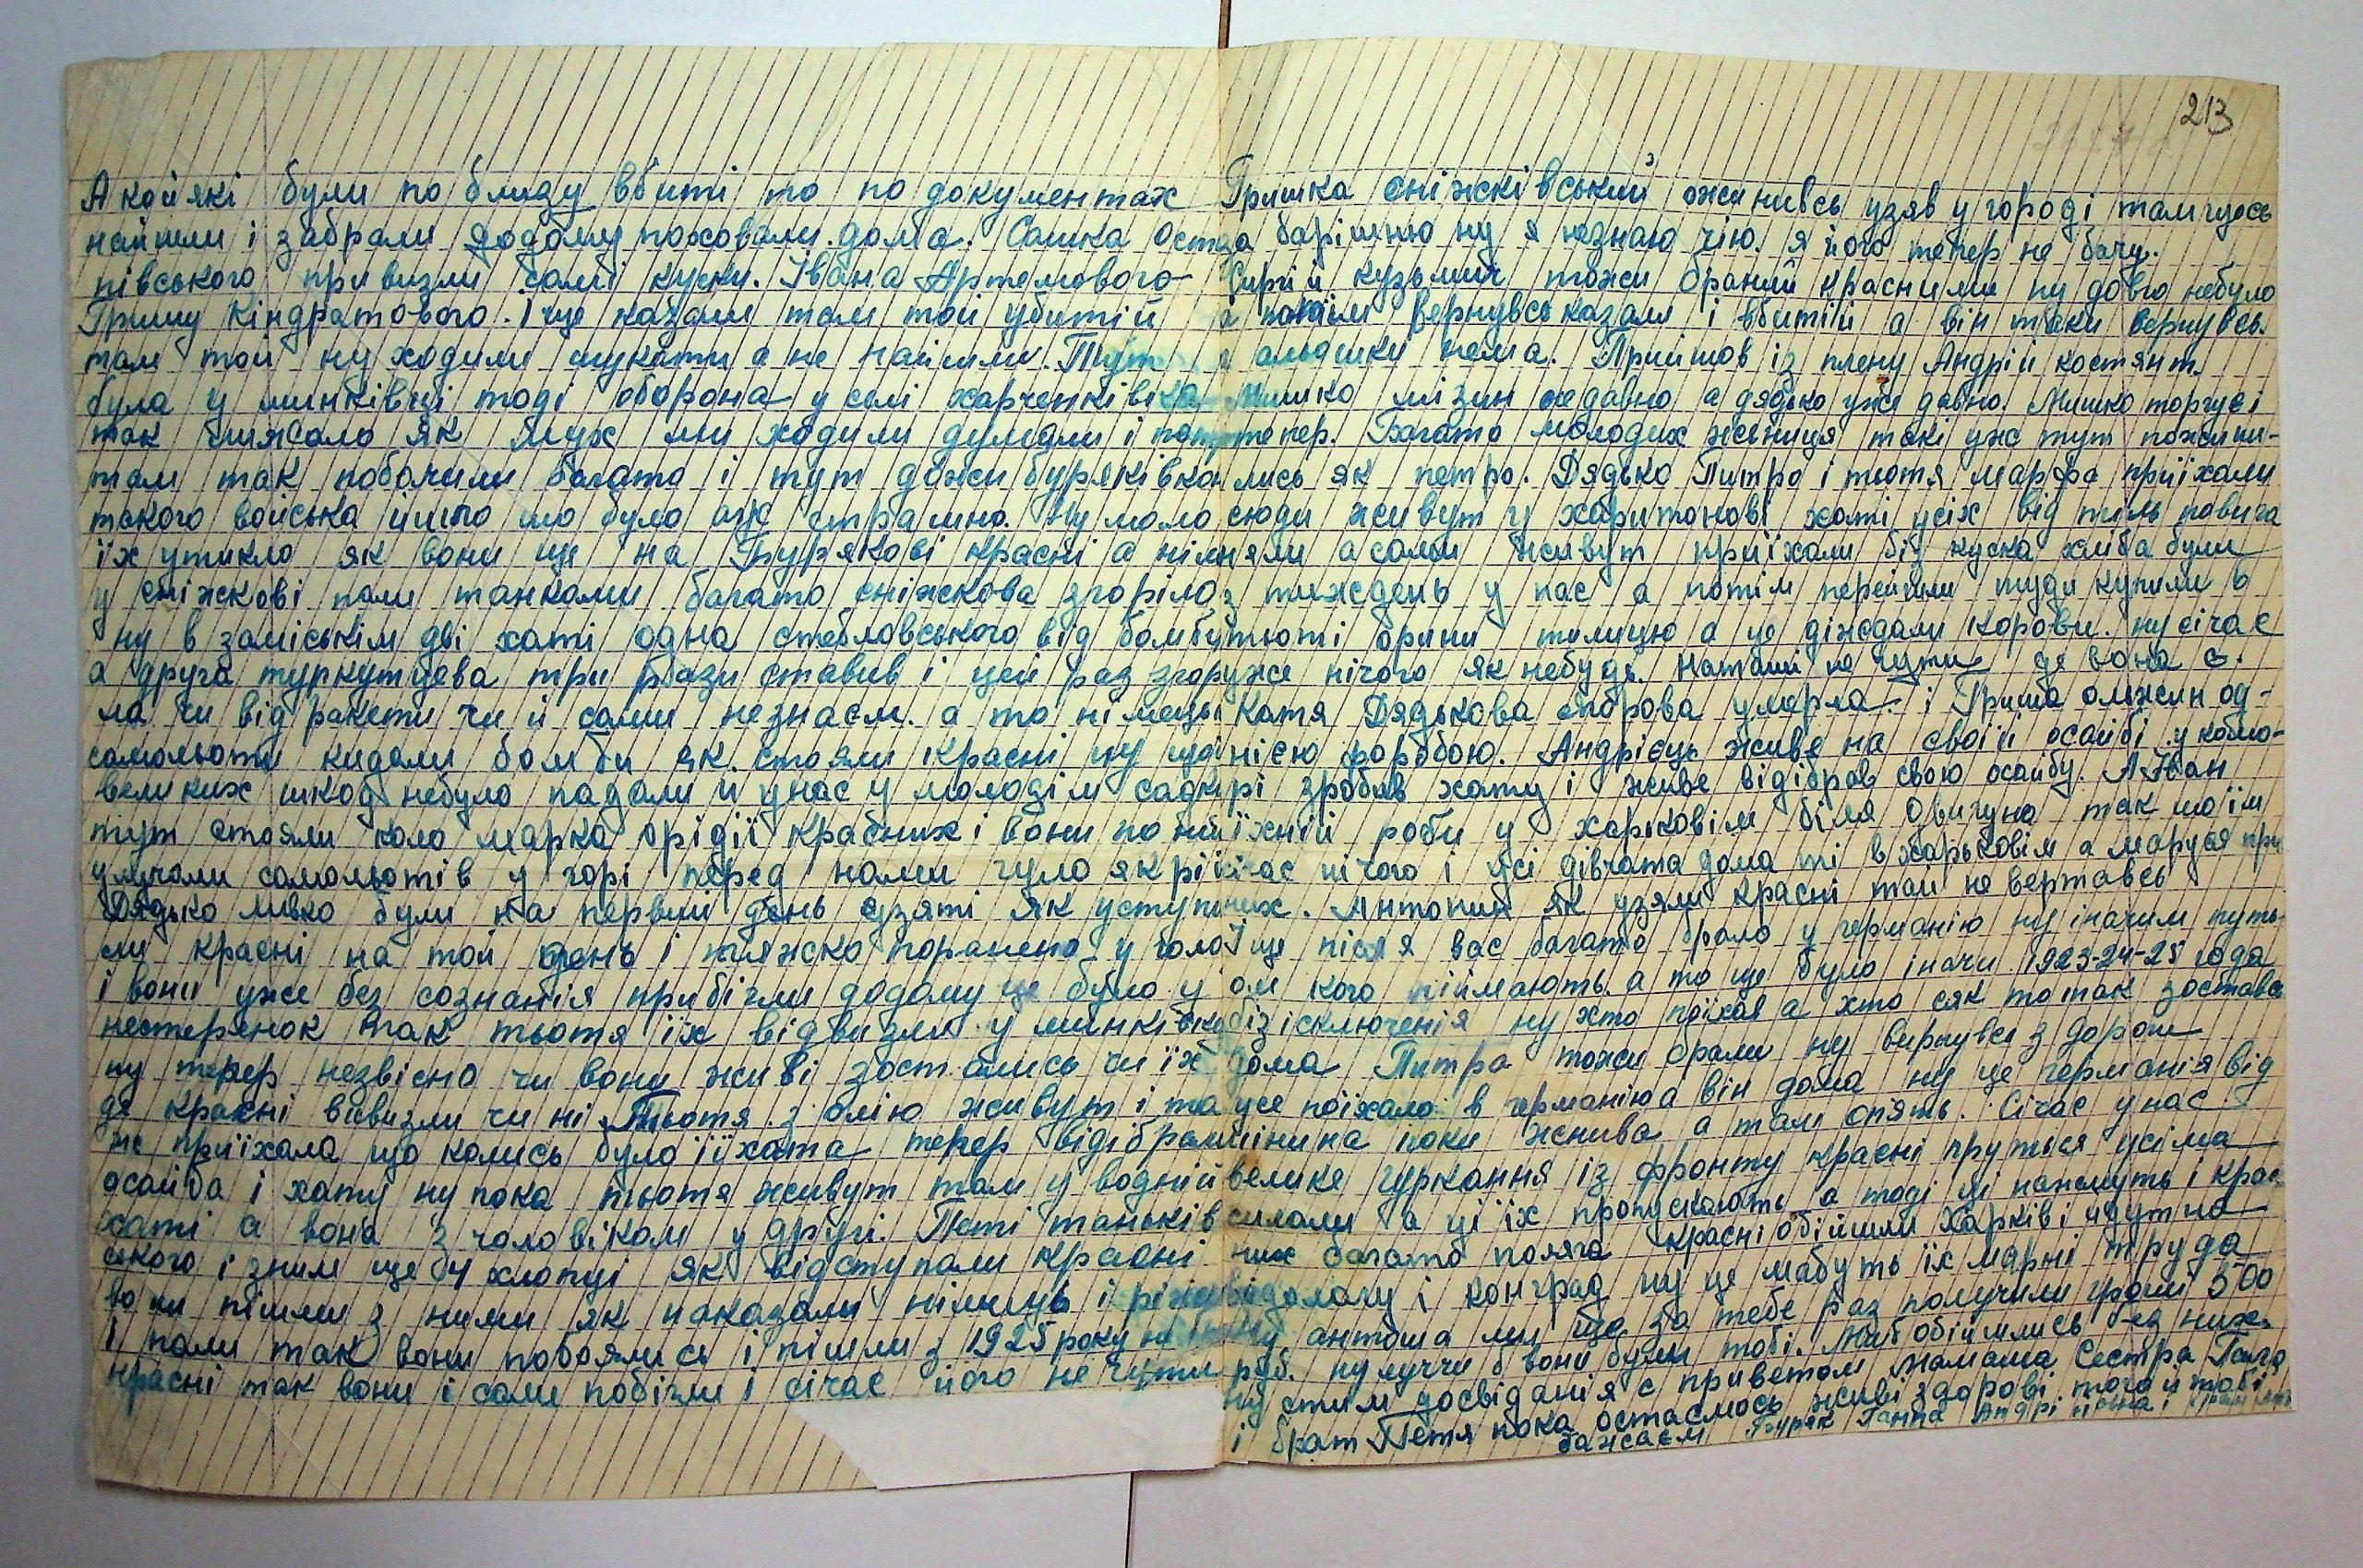 213
А кой які були по близу вбиті то по документах
найшли і забрали додому поховали. дома. Сашка Оста
півського привизли самі куски. Івана Артемового
Гришу Кіндратового. і ще казали там той убитій
там той ну ходили шукати а не найшли. Тут
була у минківці тоді оборона у селі харченківка
так лижало як мух ми ходили дивились і
там так побачили багато і тут дожи буряківка
такого войська йшло шо було аж страшно. ну мало
їх утикло як вони ще на Бурякові красні а німці
у сніжкові пали танками багато сніжкова згоріло
ну в заміськім дві хаті одна стебловського від бомби
а друга туркутцева три рази ставив і цей раз згорі
ла чи від ракети чи й сами незнаєм. а то німецькі
самольоти кидали бомби як стояли красні ну
великих шкод небуло падали й унас у молодім садку
тут стояли коло марка орідії красних і вони по ним
улучали самольотів у горі перед нами гуло як
Дядько Ливко були на первий день узяті як уступи
ли красні на той день і тяжско поранено у голо
і вони уже без сознанія прибігли додому це було у
нестеренок так тьотя їх відвизли у минківку
ну тепер незвісно чи вони живі зостались чи їх
де красні вивизли чи ні. Тьотя з олію живут і та
же приїхала що колись було її хата тепер відібрали
осайба і хату ну пока тьотя живут там у водній
хаті а вона з чоловіком у другі. Петі таньків
ського і зним ще б4 хлопці як відступали красні
вони пішли з ними як наказали німець і
і пали так вони побоялись і пішли з 1925 року
красні так вони і сами побігли і січас його не чути
Гришка сніжсківський оженивсь узяв у городі там гдесь
барішню ну я незнаю чію. я його тепер не бачу.
Сиргій кузьмич тожи браний красними ну довго небуло
а потім вернувсь казали і вбитій а він таки вернувсь.
а альошки нема. Прийшов із плену Андрій костянт.
Мишко мізин недавно а дядько уже давно. Мишко торгує і
тепер. Багато молодих жениця такі уже тут пожини-
лись як петро. Дядько Питро і тьотя марфа приїхали
сюди живут у харитонові хаті усіх від тіль повига
няли а сами живут приїхали біз куска хліба були
тиждень у нас а потім перейшли туди купили в
тьоті орини тилицю а це діждали корови. ну січас
уже нічого як небудь. Наташі не чути де вона є.
Катя Дядькова умерла. і Гриша ольжин од-
нією хоробою. Андрієць живе на своїй осайбі у комо-
рі зробив хату і живе відібрав свою осайбу. А Іван
їхній роби у харьковім біля двигуна так шо їм
січас нічого і усі дівчата дома ті в харьковім а маруся при
них. Антонин як узяли красні той не вертавсь
І ще після вас багато брало у германію ну іначим путь-
ом кого піймають. а то ще було іначи 1923-24-25 года
біз ісключенія ну хто поїхав а хто сяк то так зоставсь
дома Питра тожи брали ну вирнувсь з дороги
усе поїхало в германію а він дома ну це германія від
мінина поки жнива а там опять. Січас у нас
велике гуркання із фронту красні прутьця усіма
силами а ці їх пропускають а тоді ці нажмуть і крас
них багато поляга красні обійшли Харків і идут на
водолагу і конград ну це мабуть їх марні труда
ну антоша ми ще за тебе раз получили гроши 500
руб. ну лучче б вони були тобі. ми б обійшлись без них.
ну стим досвіданія с приветом мамаша Сестра Галя
і брат Петя пока остаємось живі здорові того й тобі
бажсаєм Буряк Ганна Андріївна і